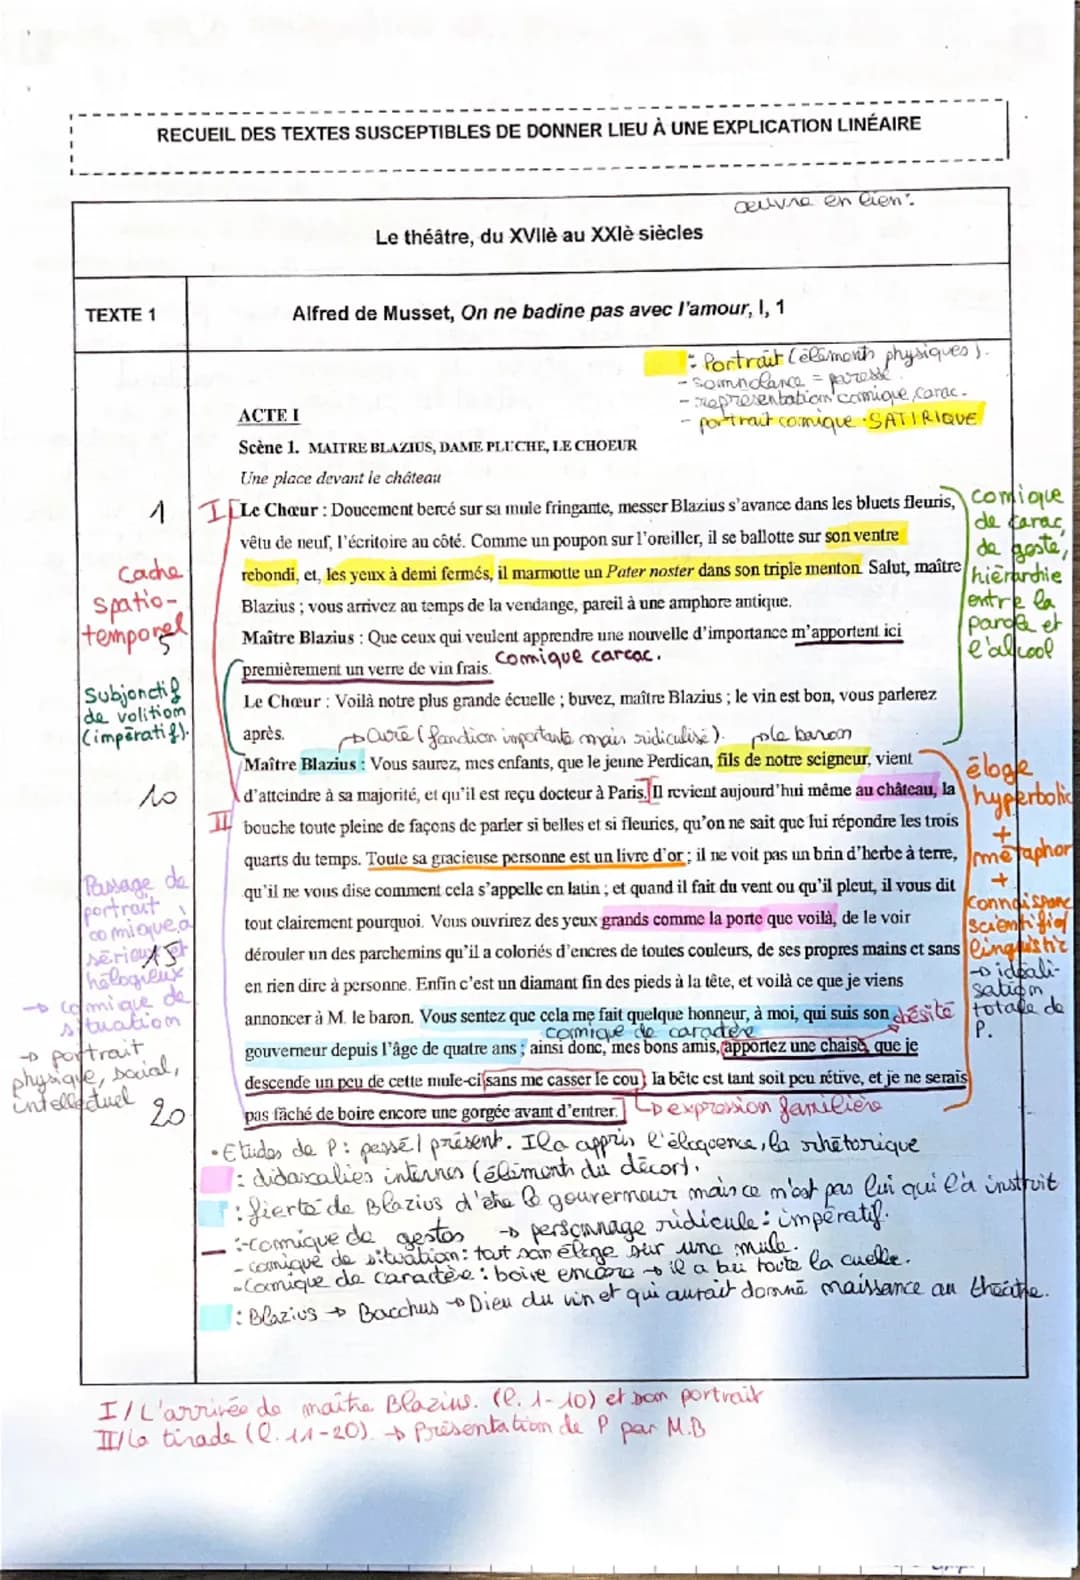 RECUEIL DES TEXTES SUSCEPTIBLES DE DONNER LIEU À UNE EXPLICATION LINÉAIRE
œuvre en lien :
Le théâtre, du XVIIè au XXIè siècles
TEXTE 1
Alfred de Musset, On ne badine pas avec l'amour, I, 1
: Portrait (éléments physiques).
- somnolance = paresse
- représentation comique, carac.
- portrait comique SATIRIQUE
ACTE I
Scène 1. MAITRE BLAZIUS, DAME PLUCHE, LE CHOEUR
Une place devant le château
1
I
Le Chœur : Doucement bercé sur sa mule fringante, messer Blazius s'avance dans les bluets fleuris,
vêtu de neuf, l'écritoire au côté. Comme un poupon sur l'oreiller, il se ballotte sur son ventre
rebondi, et, les yeux à demi fermés, il marmotte un Pater noster dans son triple menton. Salut, maître
Blazius ; vous arrivez au temps de la vendange, pareil à une amphore antique.
Maître Blazius : Que ceux qui veulent apprendre une nouvelle d'importance m'apportent ici
premièrement un verre de vin frais. Comique carcac.
Le Chœur : Voilà notre plus grande écuelle ; buvez, maître Blazius ; le vin est bon, vous parlerez
après.
→ Curé (fonction importante mais ridiculisé).
le baron
Maître Blazius : Vous saurez, mes enfants, que le jeune Perdican, fils de notre seigneur, vient
d'atteindre à sa majorité, et qu'il est reçu docteur à Paris. Il revient aujourd'hui même au château, la
II
bouche toute pleine de façons de parler si belles et si fleuries, qu'on ne sait que lui répondre les trois
quarts du temps. Toute sa gracieuse personne est un livre d'or ; il ne voit pas un brin d'herbe à terre,
qu'il ne vous dise comment cela s'appelle en latin ; et quand il fait du vent ou qu'il pleut, il vous dit
tout clairement pourquoi. Vous ouvrirez des yeux grands comme la porte que voilà, de le voir
dérouler un des parchemins qu'il a coloriés d'encres de toutes couleurs, de ses propres mains et sans
en rien dire à personne. Enfin c'est un diamant fin des pieds à la tête, et voilà ce que je viens
annoncer à M. le baron. Vous sentez que cela me fait quelque honneur, à moi, qui suis son
obésité
comique de caractère
gouverneur depuis l'âge de quatre ans ; ainsi donc, mes bons amis, apportez une chaise, que je
descende un peu de cette mule-ci sans me casser le cou ; la bête est tant soit peu rétive, et je ne serais
pas fâché de boire encore une gorgée avant d'entrer.
→ expression familière
Cache
spatio-
temporel
5
Subjonctif
de volition
(impératif).
10
Passage de
portrait
comique à
sérieux et
hélogieux
15
→ comique de
situation
→ portrait
physique, social,
intellectuel
20
comique
de carac,
de geste,
hiérarchie
entre la
parole et
l'alcool
éloge
hyperbolic
+
métaphor
+
connaissanc
scientifiq
linguistic
→ idéali-
sation
totale de
P.
• Etudes de P : passé / présent. Il a appris l'éloquence, la rhétorique
: didascalies internes (éléments du décor).
: fierté de Blazius d'être le gouverneur mais ce n'est pas lui qui l'a instruit
:-comique de gestes → personnage ridicule : impératif.
- comique de situation : tout son éloge sur une mule.
- Comique de caractère : boire encore → il a bu toute la cuelle.
: Blazius → Bacchus → Dieu du vin et qui aurait donné naissance au théâtre.
I/ L'arrivée de maître Blazius. (l. 1-10) et son portrait
II/ la tirade (l. 11-20). → Présentation de P par M.B